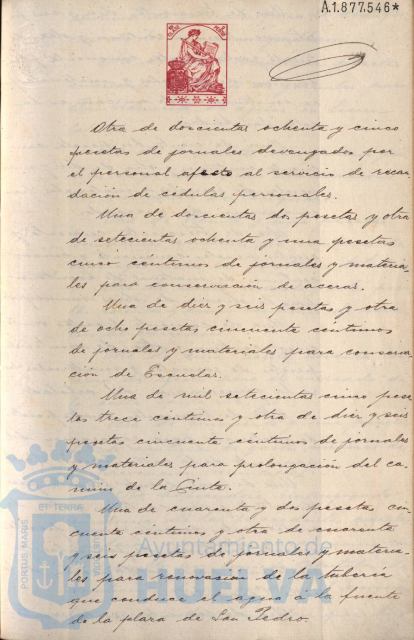 A.1.877.546*
Otra de doscientas ochenta y cinco
pesetas de jornales devengados por
el personal afecto al servicio de recau-
dación de cédulas personales.
Una de doscientas dos pesetas y otra
de setecientas ochenta y una pesetas
cinco céntimos de jornales y materia-
les para conservación de aceras.
Una de diez y seis pesetas y otra
de ocho pesetas cincuenta céntimos
de jornales y materiales para conserva-
ción de Escuelas.
Una de mil setecientas cinco pese-
tas trece céntimos y otra de diez y seis
pesetas cincuenta céntimos de jornales
y materiales para prolongación del ca-
mino de la Cinta.
Una de cuarenta y dos pesetas cin-
cuenta céntimos y otra de cuarenta
y seis pesetas de jornales y materia-
les para renovasion de la tubería
que conduce el agua á la fuente
de la plaza de San Pedro.
PORTUS MARIS
ET TERRÆ
Ayuntamiento de
HUELVA